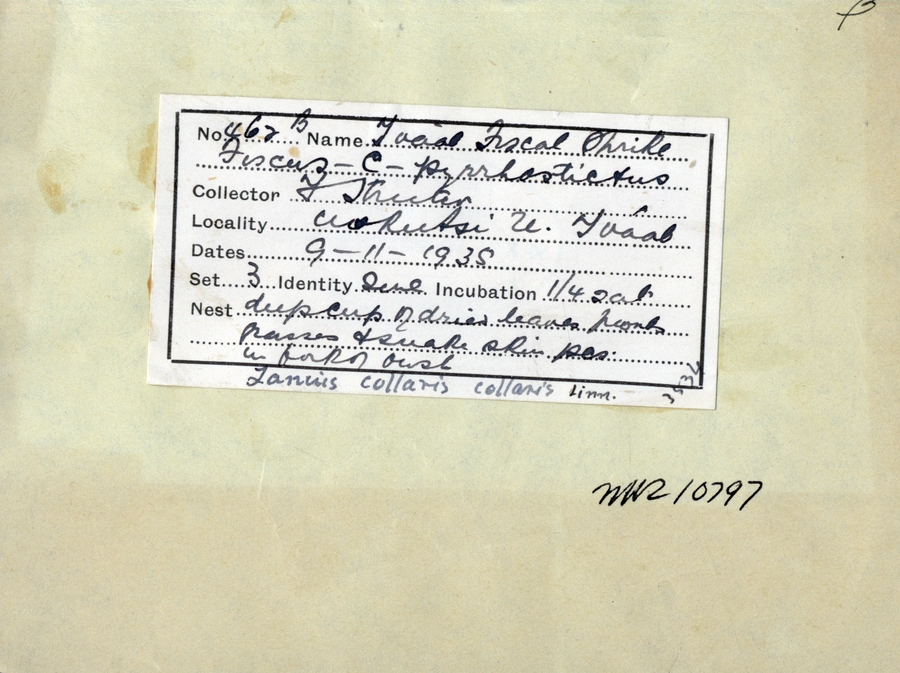 No 462 B Name Tvaal Fiscal Shrike
Fiscus - C - pyrrhostictus
Collector F Struter
Locality U. Tvaal
Dates 9-11-1935
Set 3 Identity Sure Incubation 1/4
Nest deep cup of dried leaves
grasses & snake skin pcs
in fork of bush
Lanius collaris collaris Linn.
10797